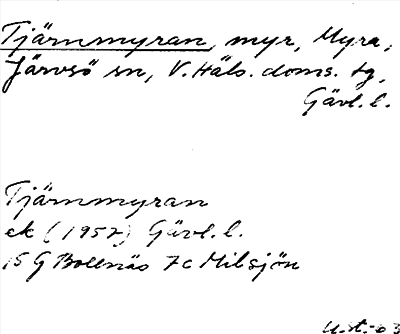 Tjärnmyran, myr, Myra,
Järvsö sn, V. Häls. doms. tg,
Gävl. l.
Tjärnmyran
ek (1957) Gävl. l.
15 G Bollnäs 7c Milsjön